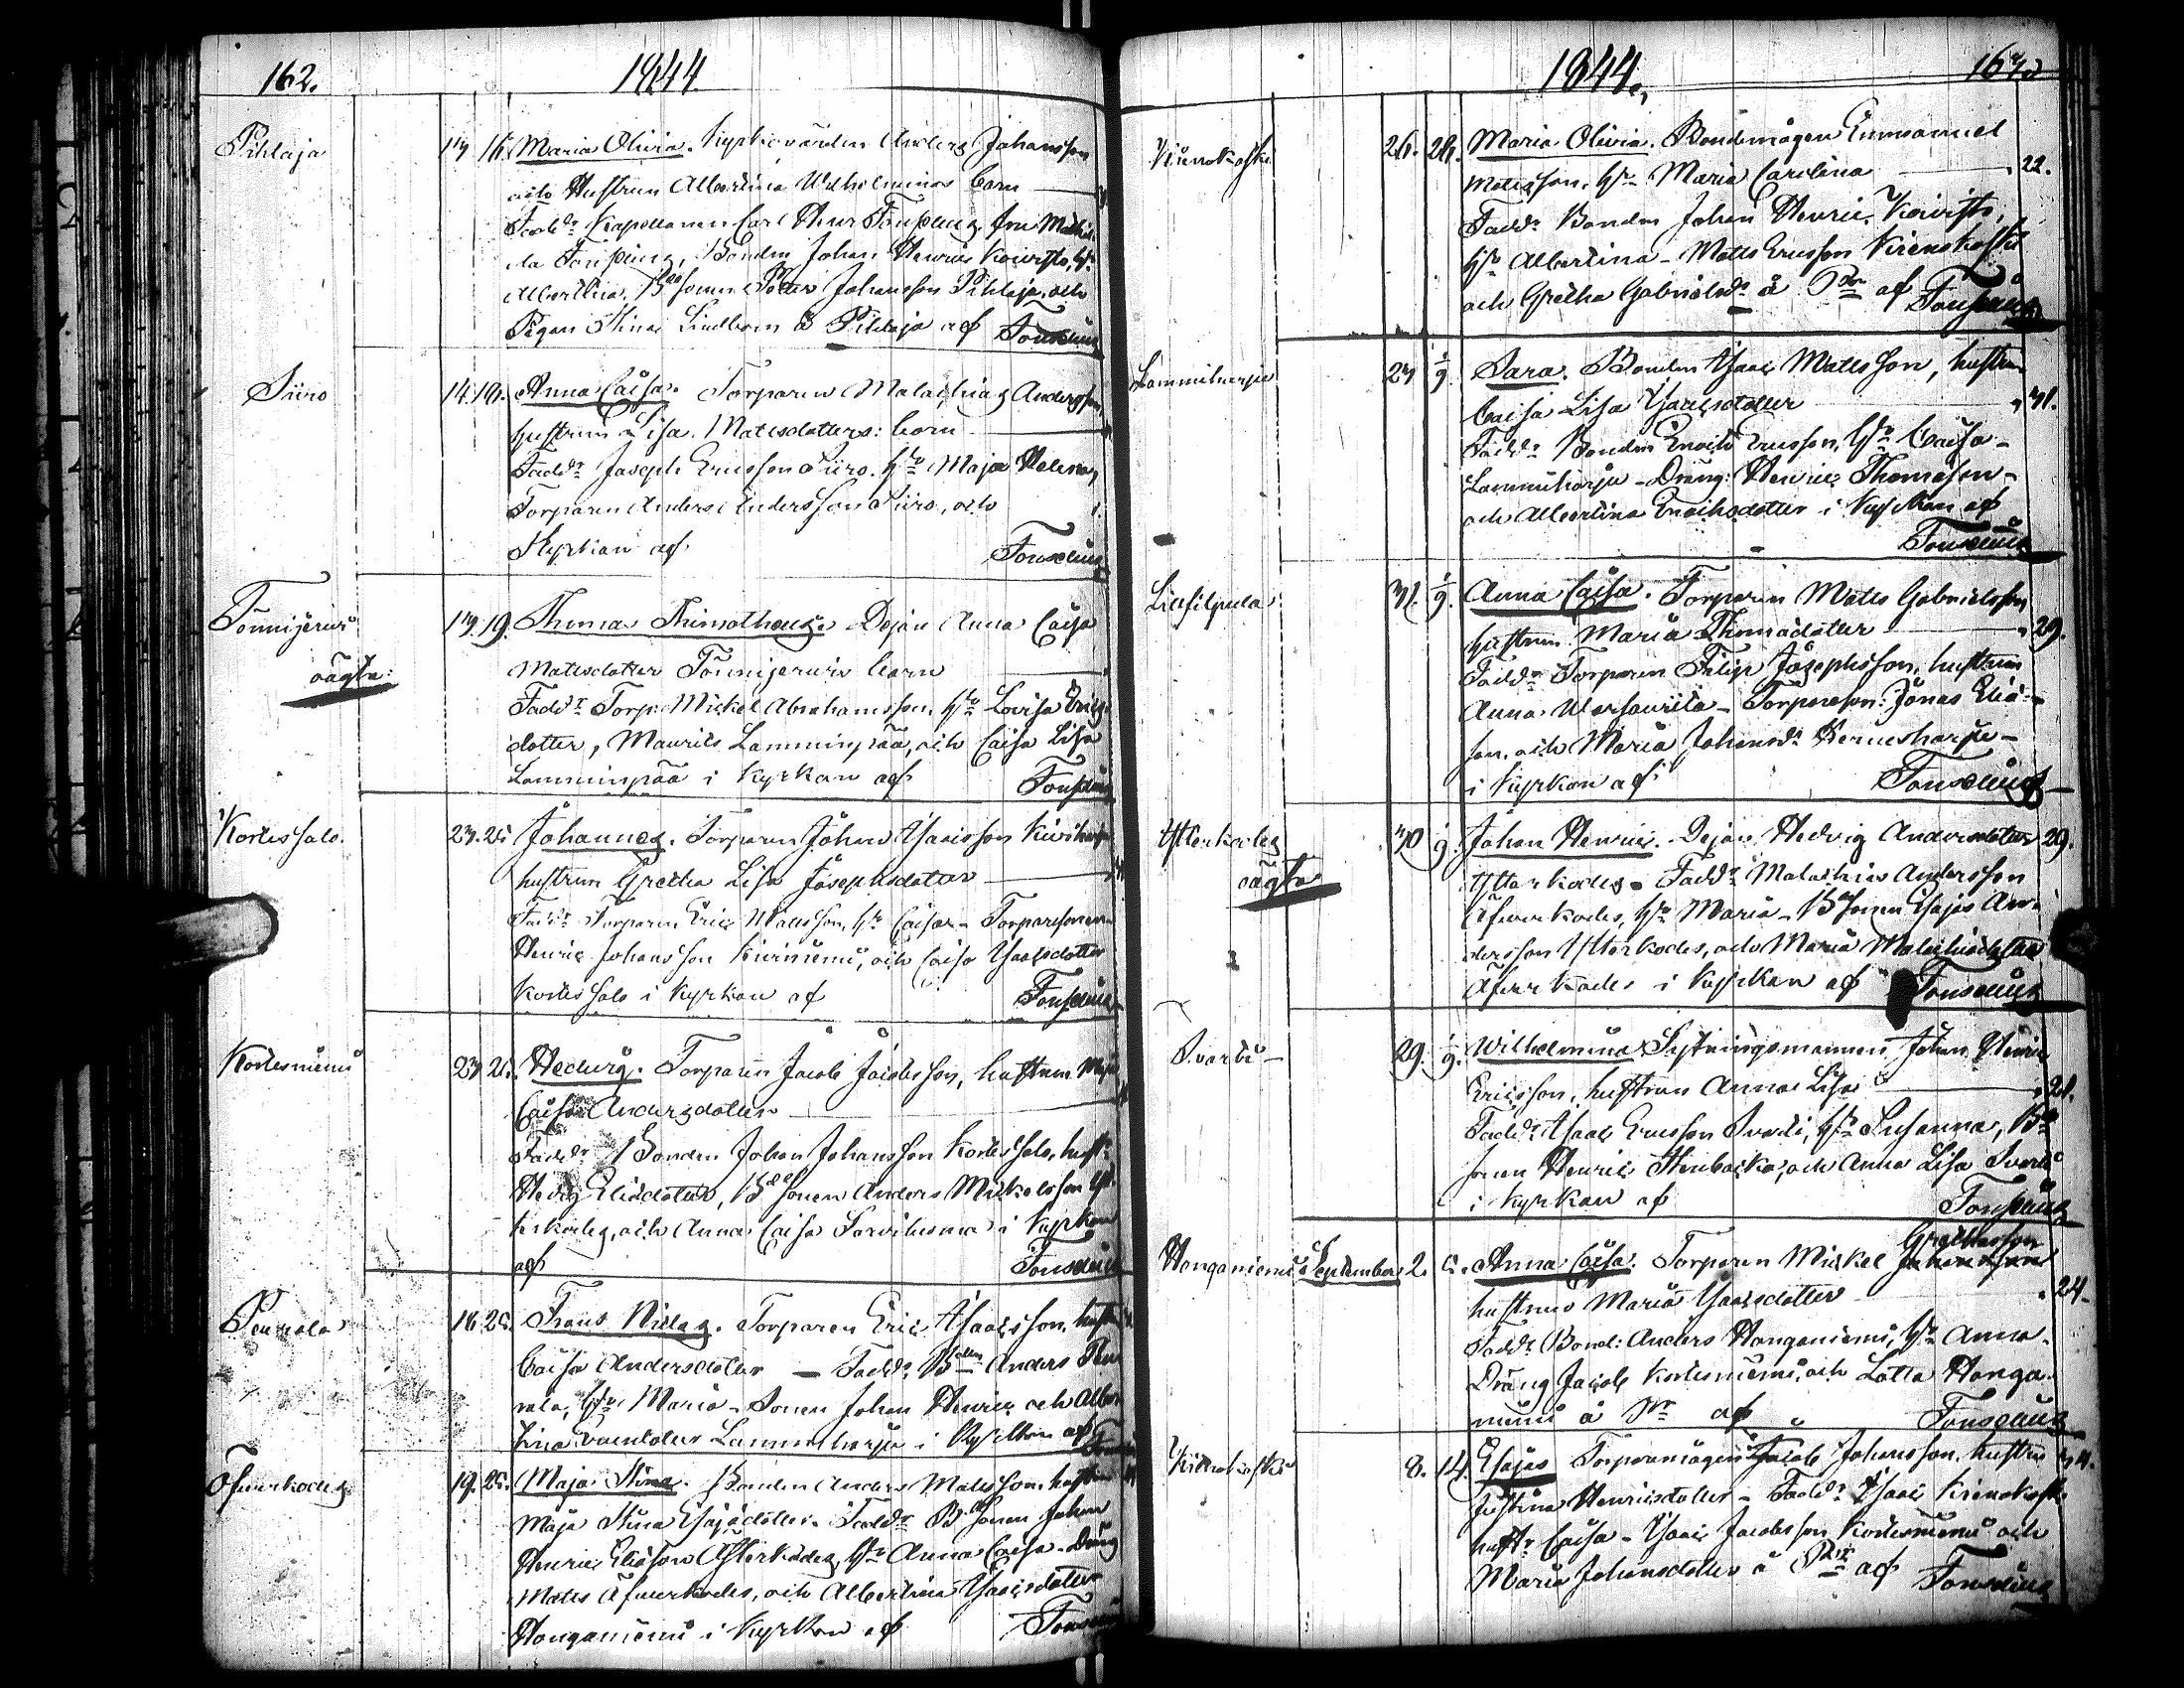 162. 1844
Pihlaja 13 16. Maria Olivia. Kyrkovärden Anders Johansson
och Hustrun Albertina Wilhelminas barn
Fadd:r Kapellanen Carl Henr Fonselius, fru Mathil-
da Fonselius, Bonden Johan Henric Koivisto, h:n
Albertina. Bdesonen Peter Johansson Pihlaja, och
Pigan Stina Lindbom å Pihlaja af Fonselius
Siiro 14. 18. Anna Caisa. Torparen Malachias Andersson,
hustrun Lisa Matesdotters: barn
Fadd:r Joseph Ericsson Siiro. h:o Maja Helena,
Torparen Anders Andersson Siiro, och
Kyrkan af Fonselius
Tönnijerwi 13. 19. Thomas Thimotheus. Dejan Anna Caisa
oägta: Matesdotter Tönnijerwis barn
Fadd:r Torp: Mickel Abrahamsson, h:o Lovisa Erics
dotter, Maurits Lamminpää, och Caisa Lisa
Lamminpää i Kyrkan af Fonselius
Kortessalo. 23. 25 Johannes. Torparen Johan Isacsson Kiviharju
hustrun Gretha Lisa Josephsdotter
Fadd:r Torparen Eric Matsson, h:o Caisa - Torparesonen
Henric Johansson Kiviniemi, och Caisa Isacsdotter
Kortessalo i Kyrkan af Fonselius
Kortesniemi 23 25. Hedvig. Torparen Jacob Jacobsson, hustrun Maja
Caisa Andersdotter
Fadd:r Bonden Johan Johansson Kortessalo, hust:
Hedvig Eliedotter, Bdesonen Anders Mickelsson Yt-
terkodes, och Anna Caisa i Kyrkan
af Fonselius
Penrala 16 25. Frans Niclas. Torparen Eric Isacsson, hustrun
Caisa Andersdotter — Fadd:r Anders Pen
rala, h:o Maria - Sonen Johan Henric och Alber
tina Lammiharju i Kyrkan af
Öfverkodes 19. 25. Maja Stina. Bonden Anders Matesson, hustrun
Maja Stina Esajedotter. Fadd:r Bdesonen Johan
Henric Eliasson Ytterkodes, h:o Anna Caisa - Dräng
Mates Öfverkodes, och Albertina Isacsdotter
Honganiemi i Kyrkan af Fonselius
1844. 163
Kirenkoski 26. 26. Maria Olivia. Bondemågen Emmanuel
Matesson, h:o Maria Carolina 22.
Fadd:r Bonden Johan Henric Koivisto,
h:o Albertina - Mates Ericsson Kirenkoski
och Gretha Gabrielsd:r å af Fonselius
Lammiharju 23 1/9 Sara. Bonden Isac Matesson, hustrun
Caisa Lisa Isacsdotter 31.
Fadd:r Bonden Enoch Ericsson, h:o Caisa -
Lammiharju - Dräng: Henric Thomasson -
och Albertina Enochsdotter i Kyrkan af
Fonselius
31. 1/9. Anna Caisa. Torparen Mates Gabrielsson
hustrun Maria Thomasdotter 29.
Fadd:r Torparen Filip Josephsson, hustrun
Anna Margaretha - Torpareson: Jonas Elia-
son, och Maria Johansd:r
i Kyrkan af Fonselius
Ytterkodes 30 1/9. Johan Henric. Dejan Hedvig Andersdotter 29.
oägta Ytterkodes - Fadd:r Malachias Andersson
Öfverkodes, h:o Maria - Bdesonen Esajas An-
dersson Ytterkodes, och Maria Malachiedotter
Öfverkodes i Kyrkan af Fonselius
Svarti 29. 1/9. Wilhelmina Sytningsmannen Johan Henric
Ericsson, hustrun Anna Lisa 21.
Fadd:r Isac Ericsson Svarti, h:o Susanna, Bde
sonen Henric Stenbacka, och Anna Lisa Svarti
i Kyrkan af Fonselius
Honganiemi September 2. 5. Anna Caisa. Torparen Mickel Johansson Grethasson
hustrun Maria Isacsdotter 24
Fadd:r Bond: Anders Honganiemi, h:o Anna -
Dräng Jacob Kortesniemi, och Lotta Honga-
niemi å af Fonselius
Kirenkoski 8. 14. Esajas Torparemågen Jacob Johansson, hustru
Justina Henricsdotter - Fadd:r Isac Kirenkoski
hust:r Caisa - Isaac Jacobsson Kortesniemi och
Maria Johansdotter å af Fonselius